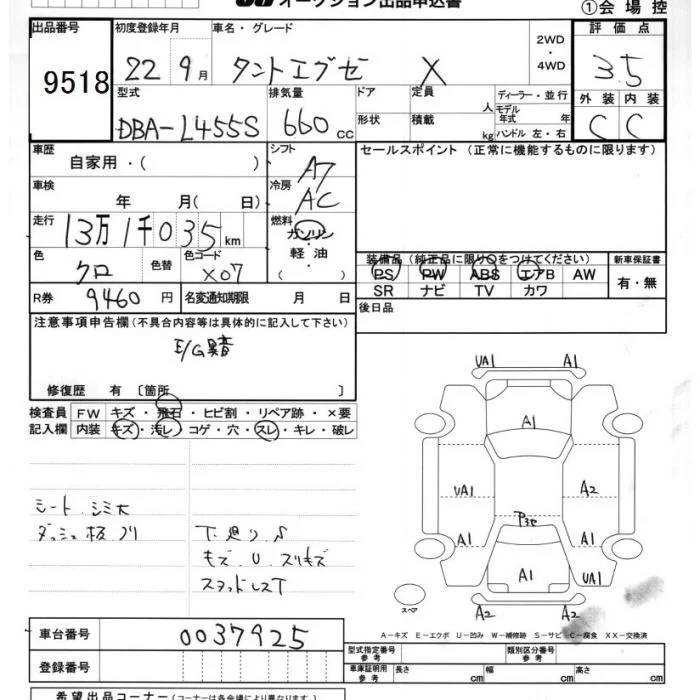 オークション出品申込書
①会場控
出品番号 初度登録年月 車名・グレード 2WD・4WD 評価点
9518 22 9月 タントエグゼ X 3.5
型式 排気量 ドア 定員 人 ディーラー・並行 外装 内装
DBA-L455S 660cc 形状 積載 kg モデル年式 年 ハンドル 左・右 C C
車歴 自家用・( ) シフト A7 セールスポイント (正常に機能するものに限ります)
車検 年 月( 日) 冷房 AC
走行 13万1千035km 燃料 ガソリン・軽油 ( )
装備品 (純正品に限り○をつけてください) 新車保証書
色 クロ 色替 色コード X07 PS PW ABS エアB AW 有・無
SR ナビ TV カワ
R券 9460円 名変通知期限 月 日 後日品
注意事項申告欄 (不具合内容等は具体的に記入して下さい)
E/G異音
修復歴 有 〔箇所 〕
検査員 FW キズ・飛石・ヒビ割・リペア跡・×要
記入欄 内装 キズ・汚レ・コゲ・穴・スレ・キレ・破レ
シート シミ大
ダッシュ板 ノリ
下廻り S
キズ U スリキズ
スタッドレスT
UA1 A1
A1
UA1 A2
P3セ
A1 A1
A1 UA1
A2 A2
スペア
A-キズ E-エクボ U-凹み W-補修跡 S-サビ C-腐食 XX-交換済
車台番号 0037925
型式指定番号 参考 類別区分番号 参考
登録番号 車庫証明用 参考 長さ cm 幅 cm 高さ cm
希望出品コーナー (コーナーは各会場により異なります。)